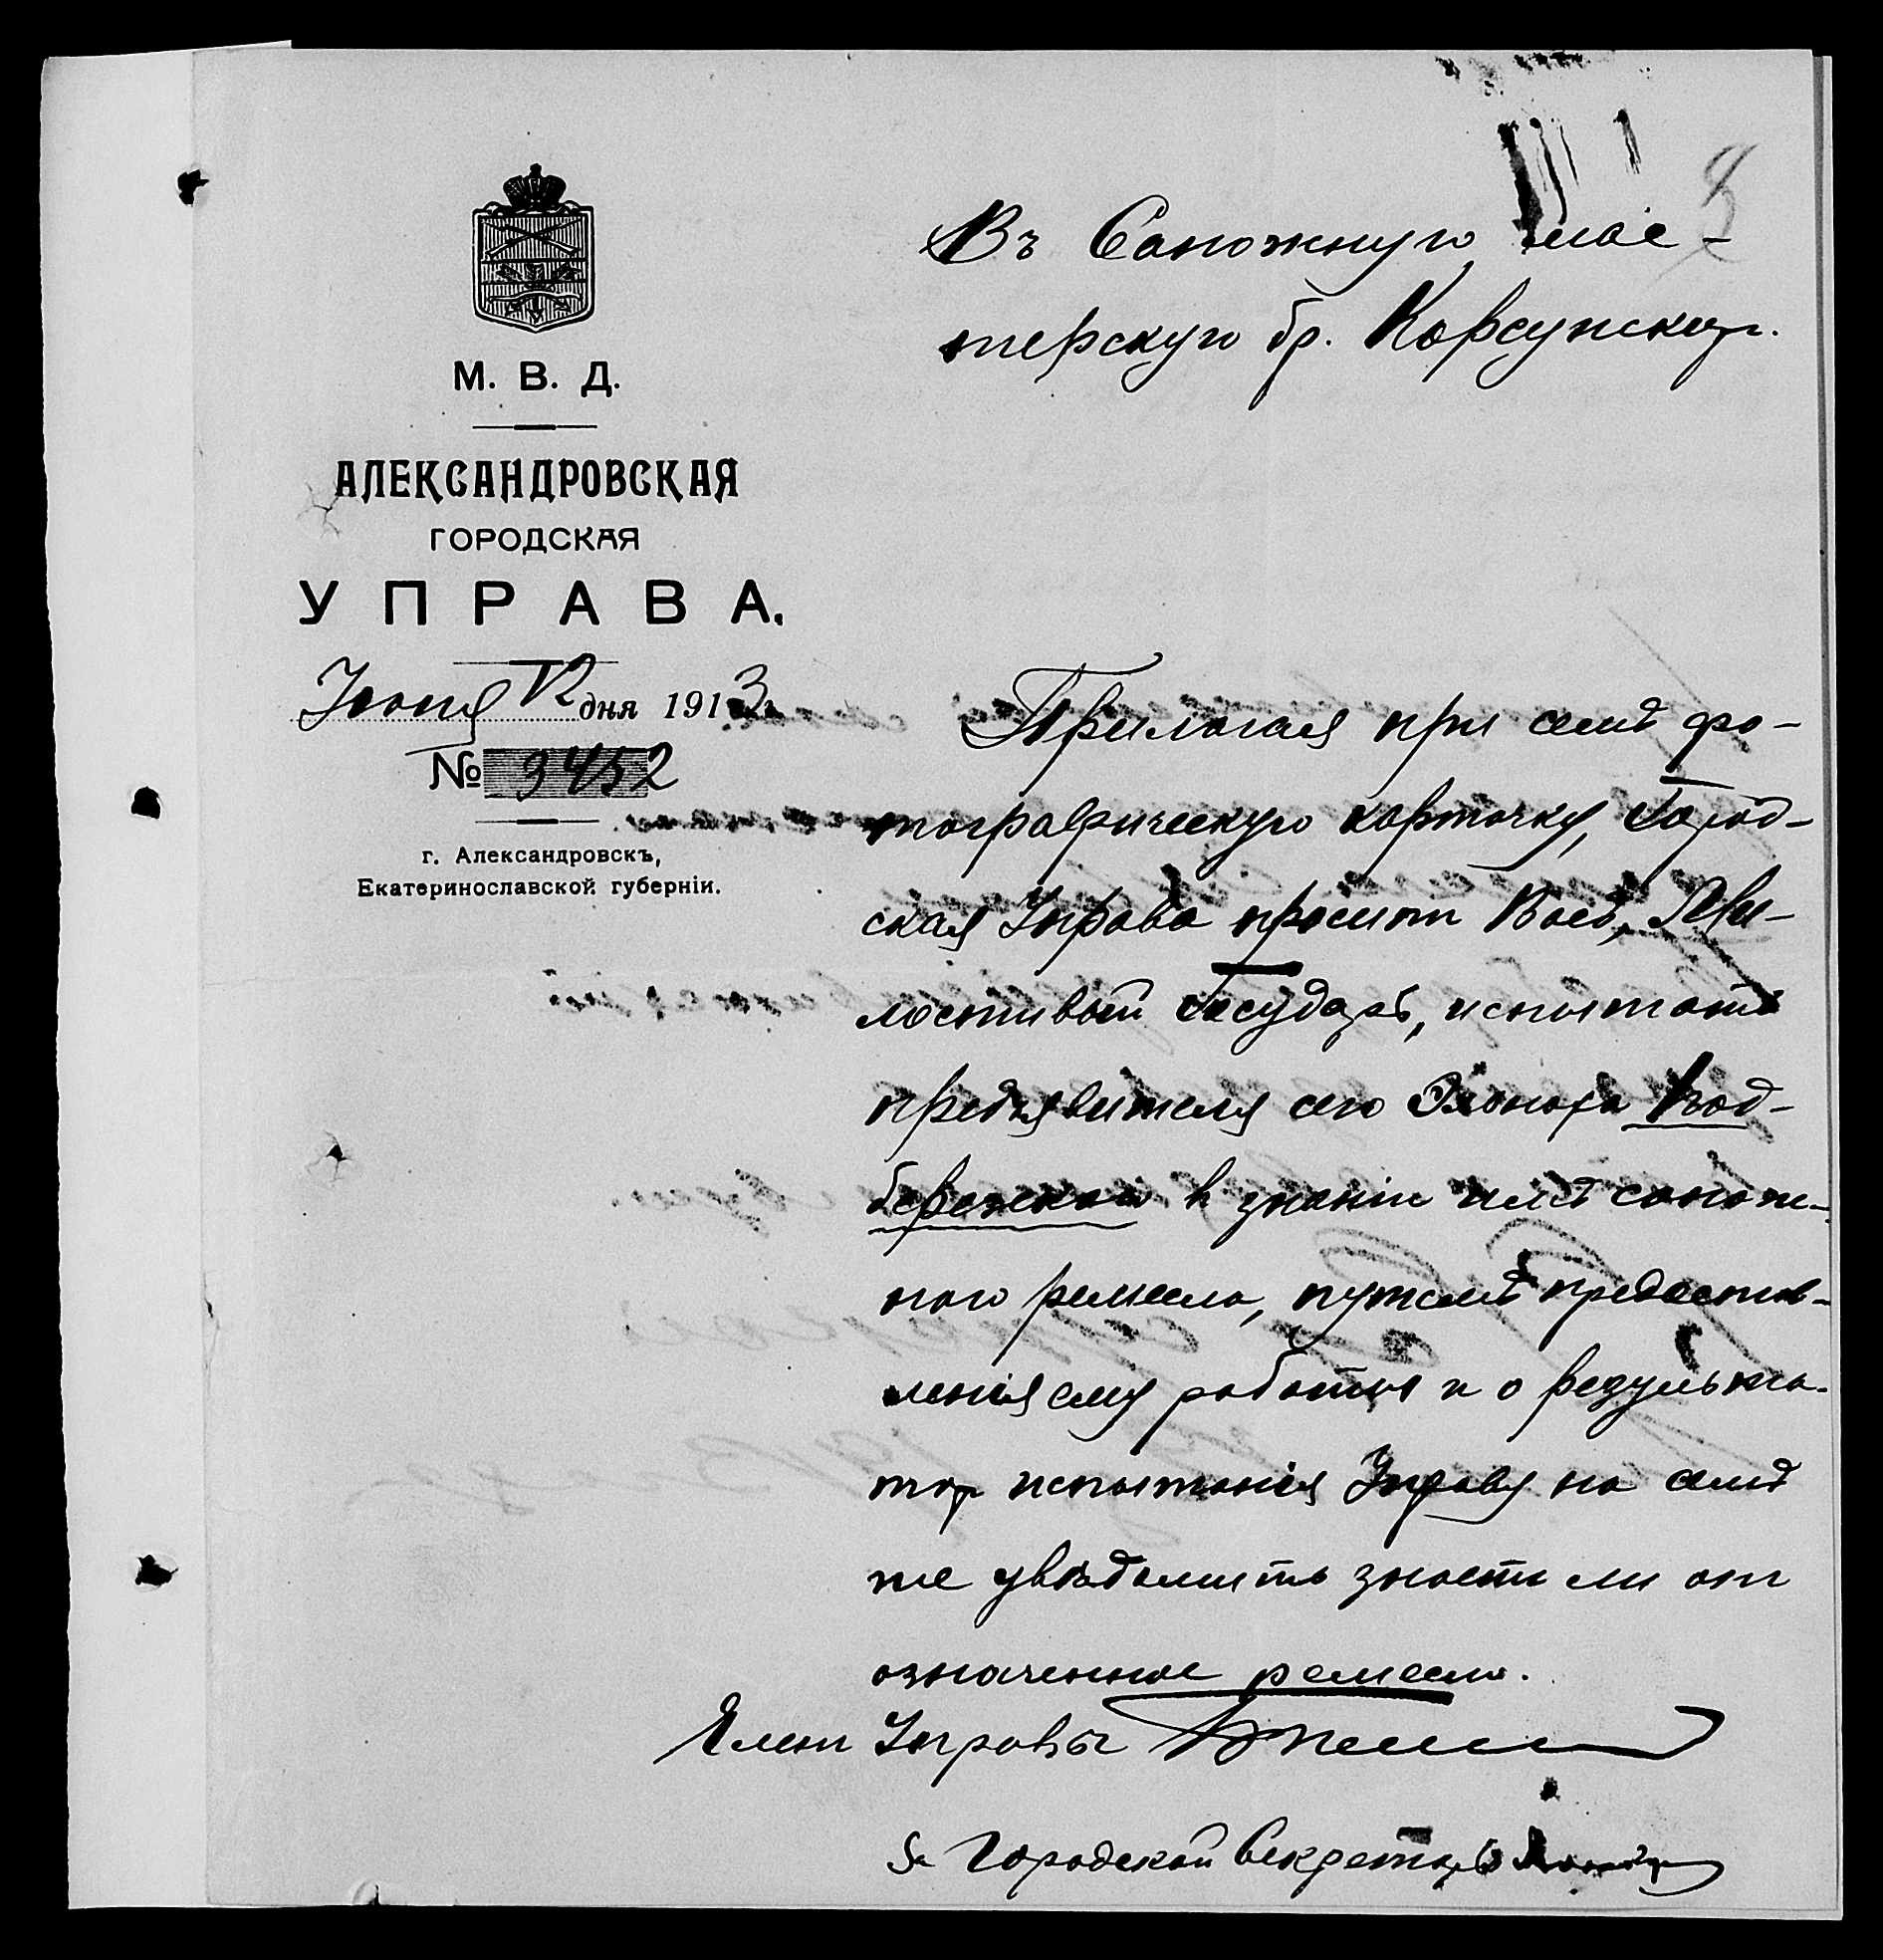 М. В. Д.
АЛЕКСАНДРОВСКАЯ
ГОРОДСКАЯ
УПРАВА.
Июня 12 дня 1913 г.
№ 9452
г. Александровскъ,
Екатеринославской губерніи.
Въ Сапожную мас-
терскую бр. Корсунскихъ.
Прилагая при семъ фо-
тографическую карточку, Город-
ская Управа проситъ Васъ, Ми-
лостивый Государь, испытать
предъявителя сего Эльонора Под-
бережскаго въ знаніи имъ сапож-
наго ремесла, путемъ предостав-
ленія ему работы и о результа-
тѣ испытанія Управу на семъ
же увѣдомить знаетъ ли онъ
означенное ремесло.
Членъ Управы
За Городской Секретарь